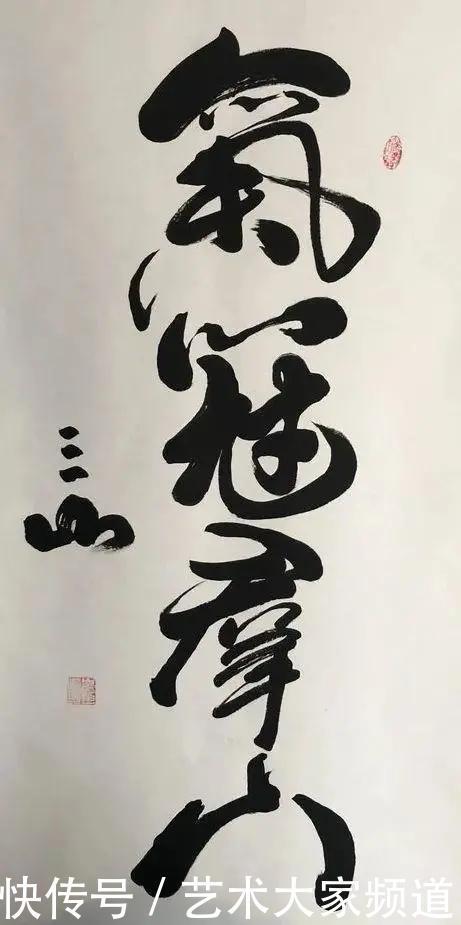 氣冠羣山
三山
快传号 / 艺术大家频道